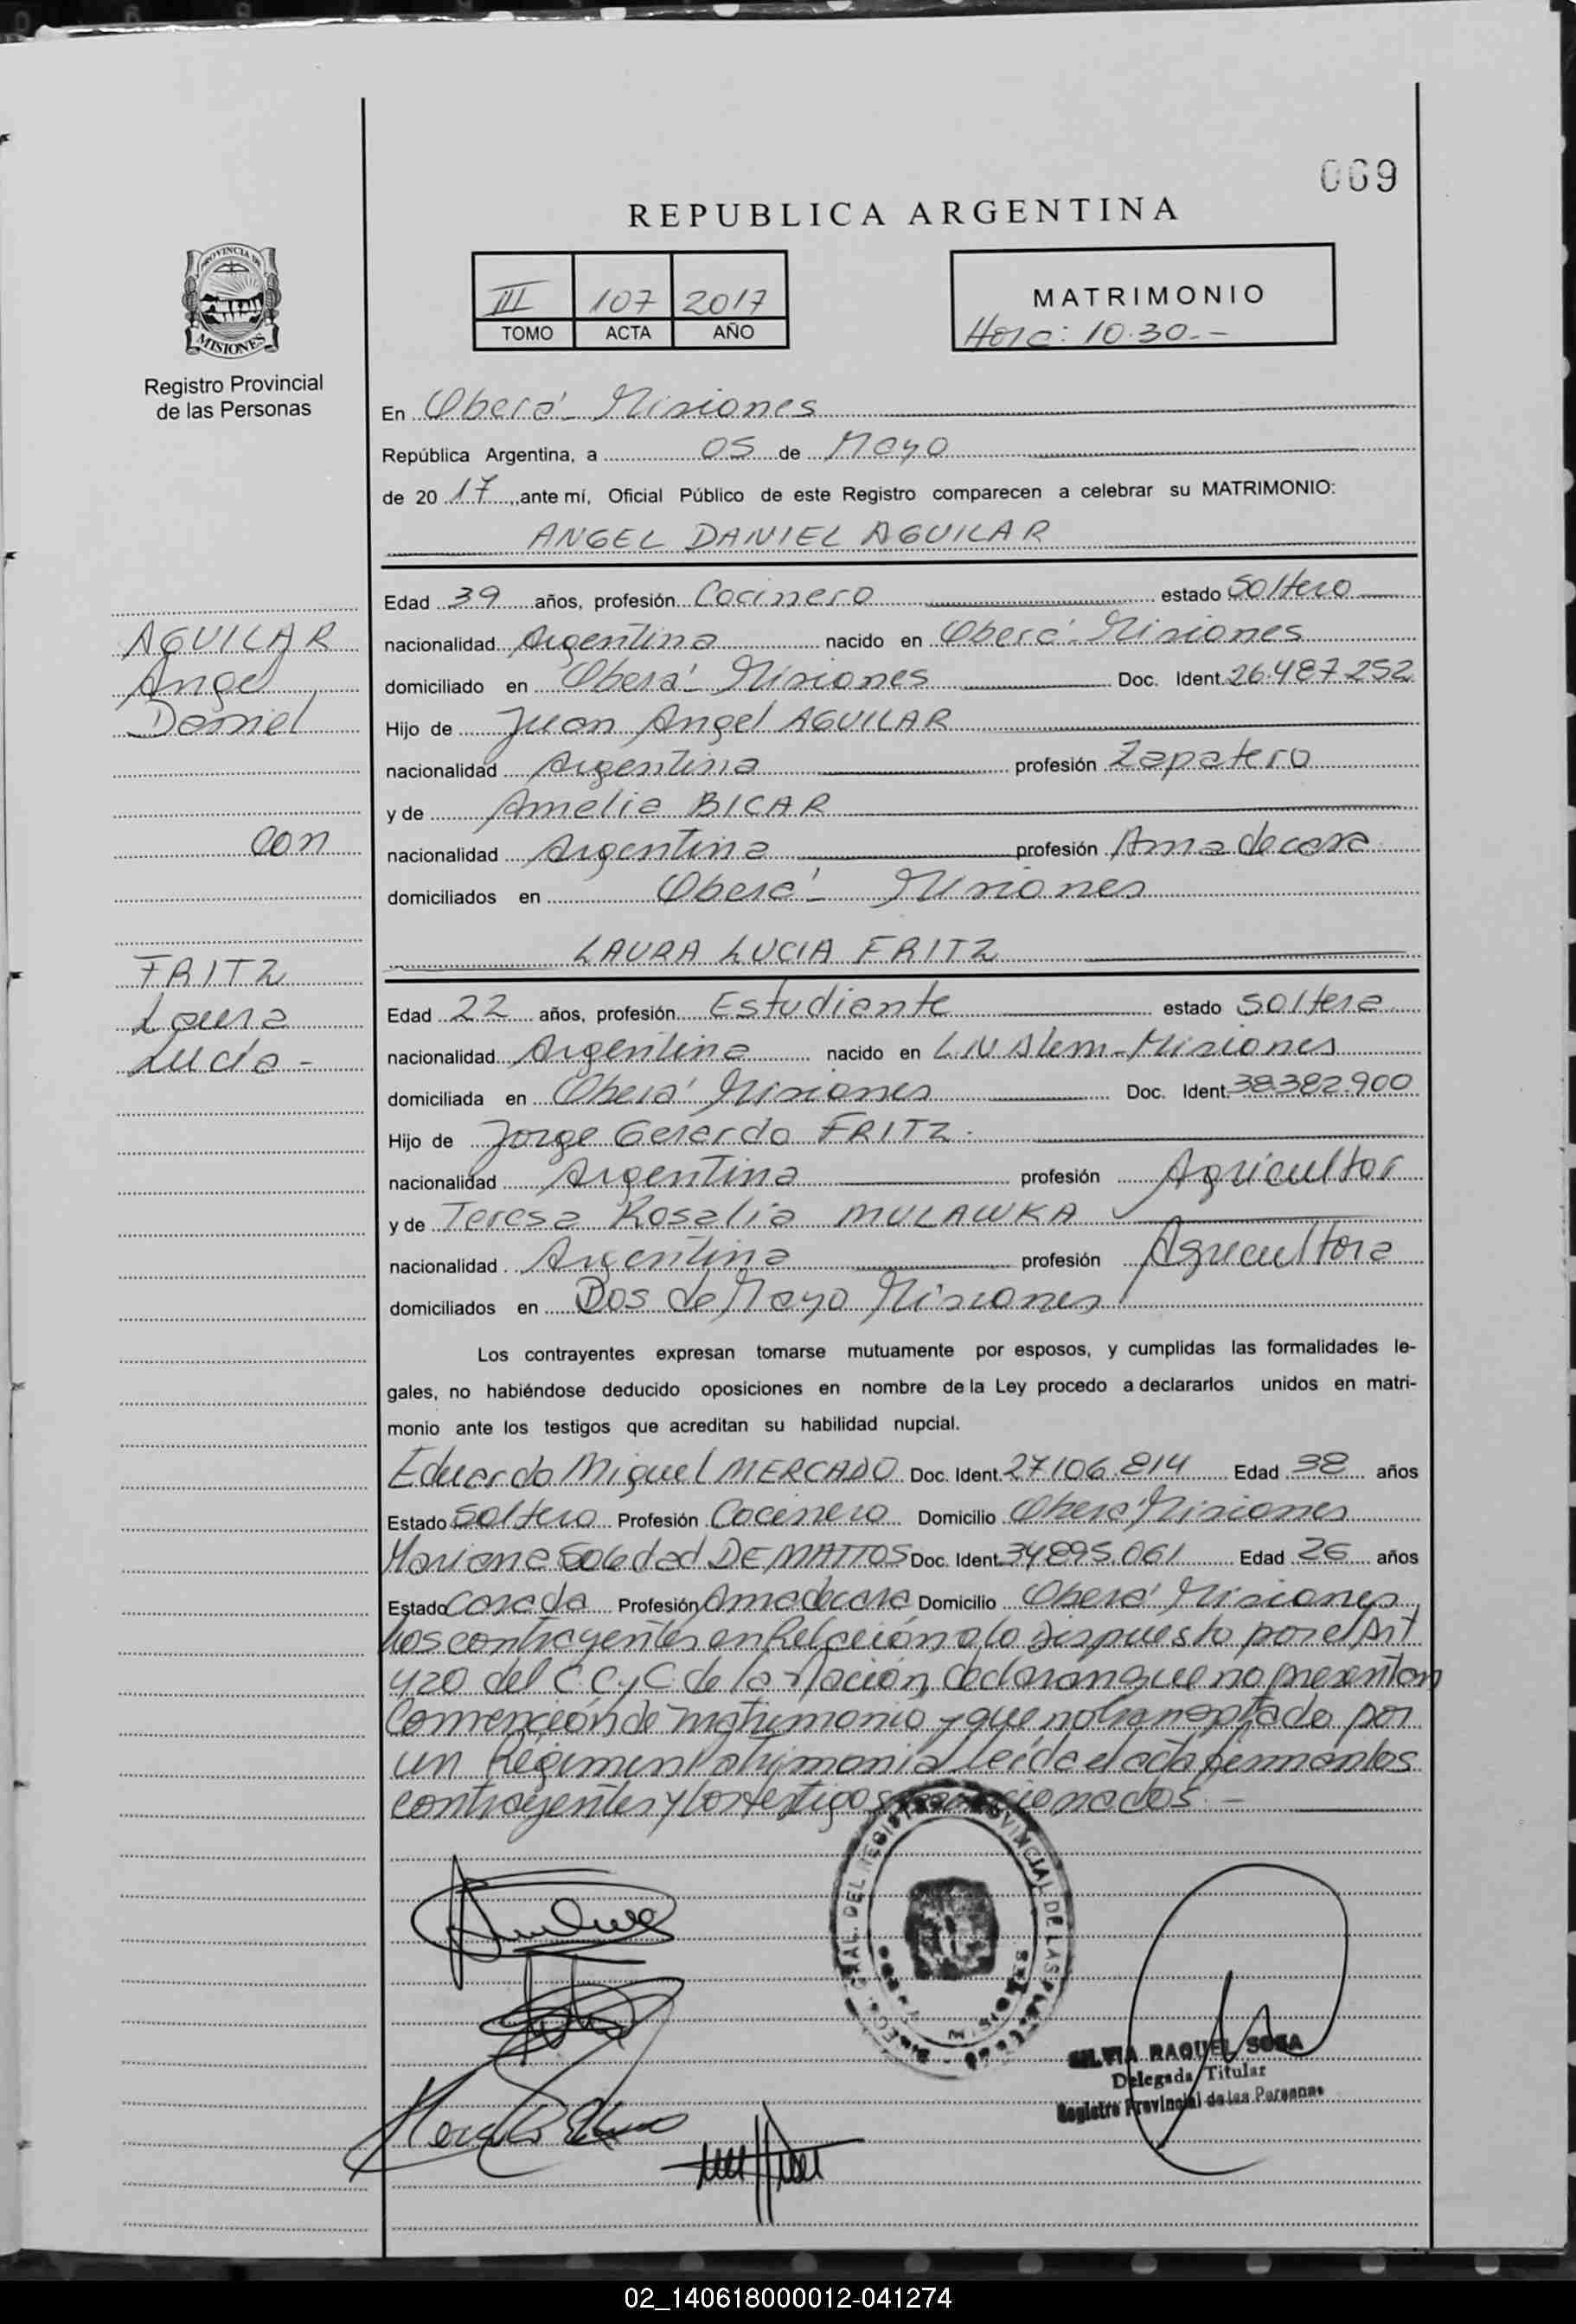 069
REPUBLICA ARGENTINA
PROVINCIA DE
MISIONES
Registro Provincial
de las Personas
III 107 2017
TOMO ACTA AÑO
MATRIMONIO
Hora: 10.30.-
En Oberá - Misiones
República Argentina, a 05 de Mayo
de 20 17, ante mí, Oficial Público de este Registro comparecen a celebrar su MATRIMONIO:
ANGEL DANIEL AGUILAR
Edad 39 años, profesión Cocinero estado Soltero
AGUILAR
nacionalidad Argentina nacido en Oberá - Misiones
Angel
domiciliado en Oberá - Misiones Doc. Ident. 26.487.252
Daniel
Hijo de Juan Angel AGUILAR
nacionalidad Argentina profesión Zapatero
y de Amelia BICAR
con
nacionalidad Argentina profesión Ama de casa
domiciliados en Oberá - Misiones
LAURA LUCIA FRITZ
FRITZ
Edad 22 años, profesión Estudiante estado Soltera
Laura
nacionalidad Argentina nacido en L.N Alem - Misiones
Lucía -
domiciliada en Oberá Misiones Doc. Ident. 38.382.900
Hijo de Jorge Gerardo FRITZ.
nacionalidad Argentina profesión Agricultor
y de Teresa Rosalia MULAWKA
nacionalidad Argentina profesión Agricultora
domiciliados en Dos de Mayo Misiones
Los contrayentes expresan tomarse mutuamente por esposos, y cumplidas las formalidades le-
gales, no habiéndose deducido oposiciones en nombre de la Ley procedo a declararlos unidos en matri-
monio ante los testigos que acreditan su habilidad nupcial.
Eduardo Miguel MERCADO Doc. Ident. 27.106.814 Edad 38 años
Estado Soltero Profesión Cocinero Domicilio Oberá Misiones
Mariana Soledad DE MATTOS Doc. Ident. 34.895.061 Edad 26 años
Estado Casada Profesión Ama de casa Domicilio Oberá Misiones
Los contrayentes en Relación a lo Dispuesto por el Art
420 del C.C.y C. de la Nación, declaran que no presentan
Convención de matrimonio y que no han optado por
un Régimen Patrimonial leída el acta firman los
contrayentes y los testigos mencionados -
SILVIA RAQUEL SOSA
Delegada Titular
Registro Provincial de las Personas
02_140618000012-041274